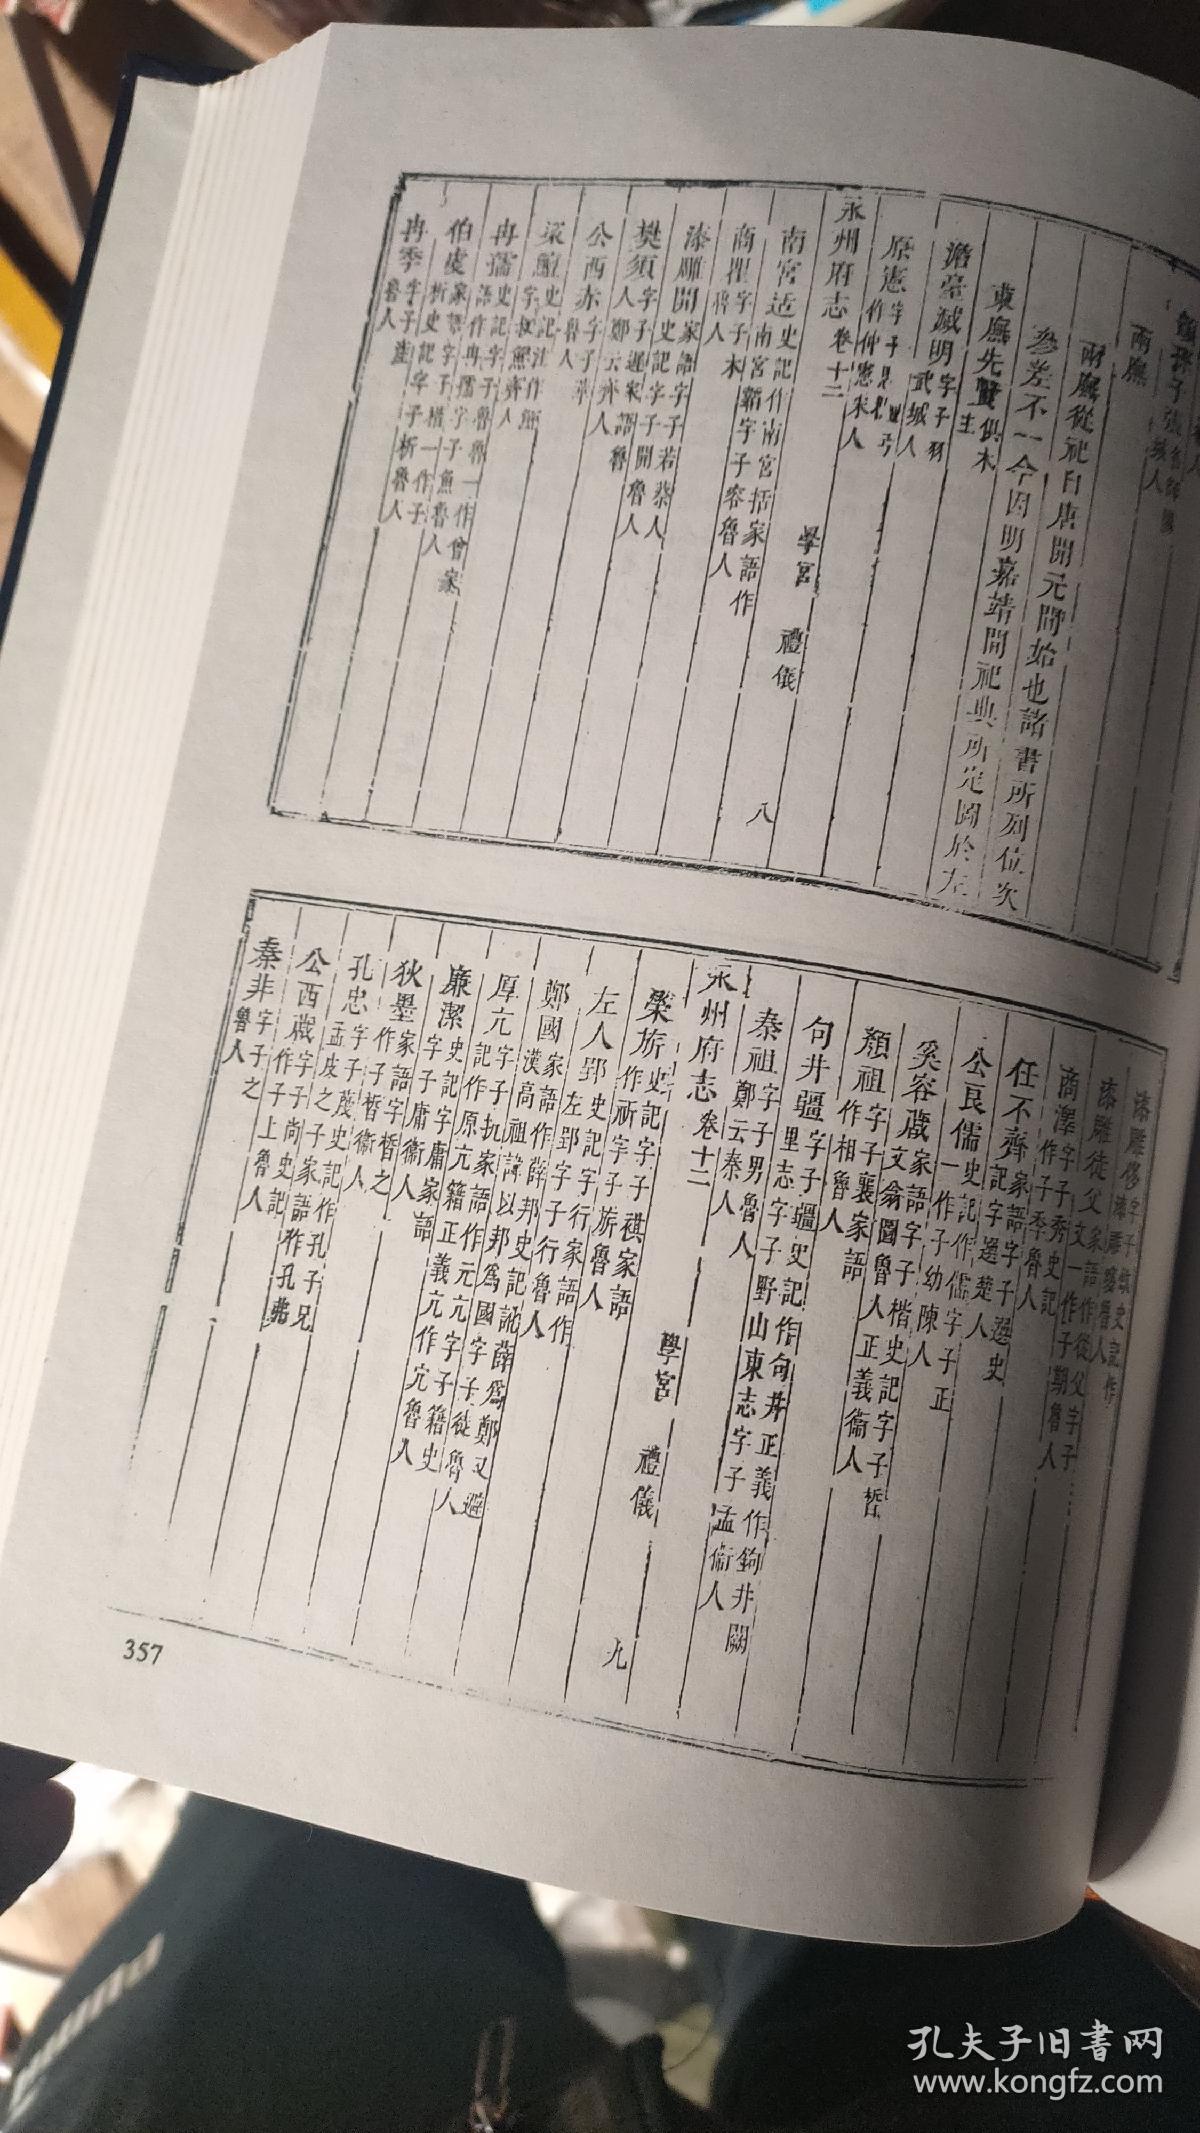 兩廡
兩廡從祀自唐開元間始也諸書所列位次
參差不一今因明嘉靖間祀典所定圖於左
東廡先賢供木主
澹臺滅明字子羽武城人
原憲
永州府志 卷十二 學宮 禮儀 八
南宮适史記作南宮括家語作南宮韜字子容魯人
商瞿字子木魯人
漆雕開家語字子若蔡人史記字子開魯人
樊須字子遲家語魯人鄭云齊人
公西赤字子華魯人
梁鱣史記注作鯉字叔魚齊人
冉孺史記字子魯一作曾家語作冉儒字子魚魯人
伯虔家語字子楷一作子析史記字子析魯人
冉季字子產魯人
漆雕徒父家語作從父字子文一作子期魯人
商澤字子秀史記作子季魯人
任不齊家語字子選史記字選楚人
公良儒史記作儒字子正一作子幼陳人
奚容蒧家語字子楷史記字子皙文翁圖魯人正義衞人
顏祖字子襄家語作相魯人
句井疆字子疆史記作句井正義作鉤井闕里志字子野山東志字子孟衞人
秦祖字子男魯人鄭云秦人
永州府志 卷十二 學宮 禮儀 九
榮旂史記字子祺家語作祈字子旂魯人
左人郢史記字行家語作左郢字子行魯人
鄭國家語作薛邦史記訛薛爲鄭又避漢高祖諱以邦爲國字子徒魯人
厚亢字子抗家語作元亢字子籍史記作原亢籍正義亢作冗魯人
廉潔史記字庸家語字子庸衞人
狄墨家語字皙之作子皙衞人
孔忠字子蔑史記作孔子兄孟皮之子家語作孔弗
公西蒧字子尚史記作子上魯人
秦非字子之魯人
357
孔夫子旧书网
www.kongfz.com